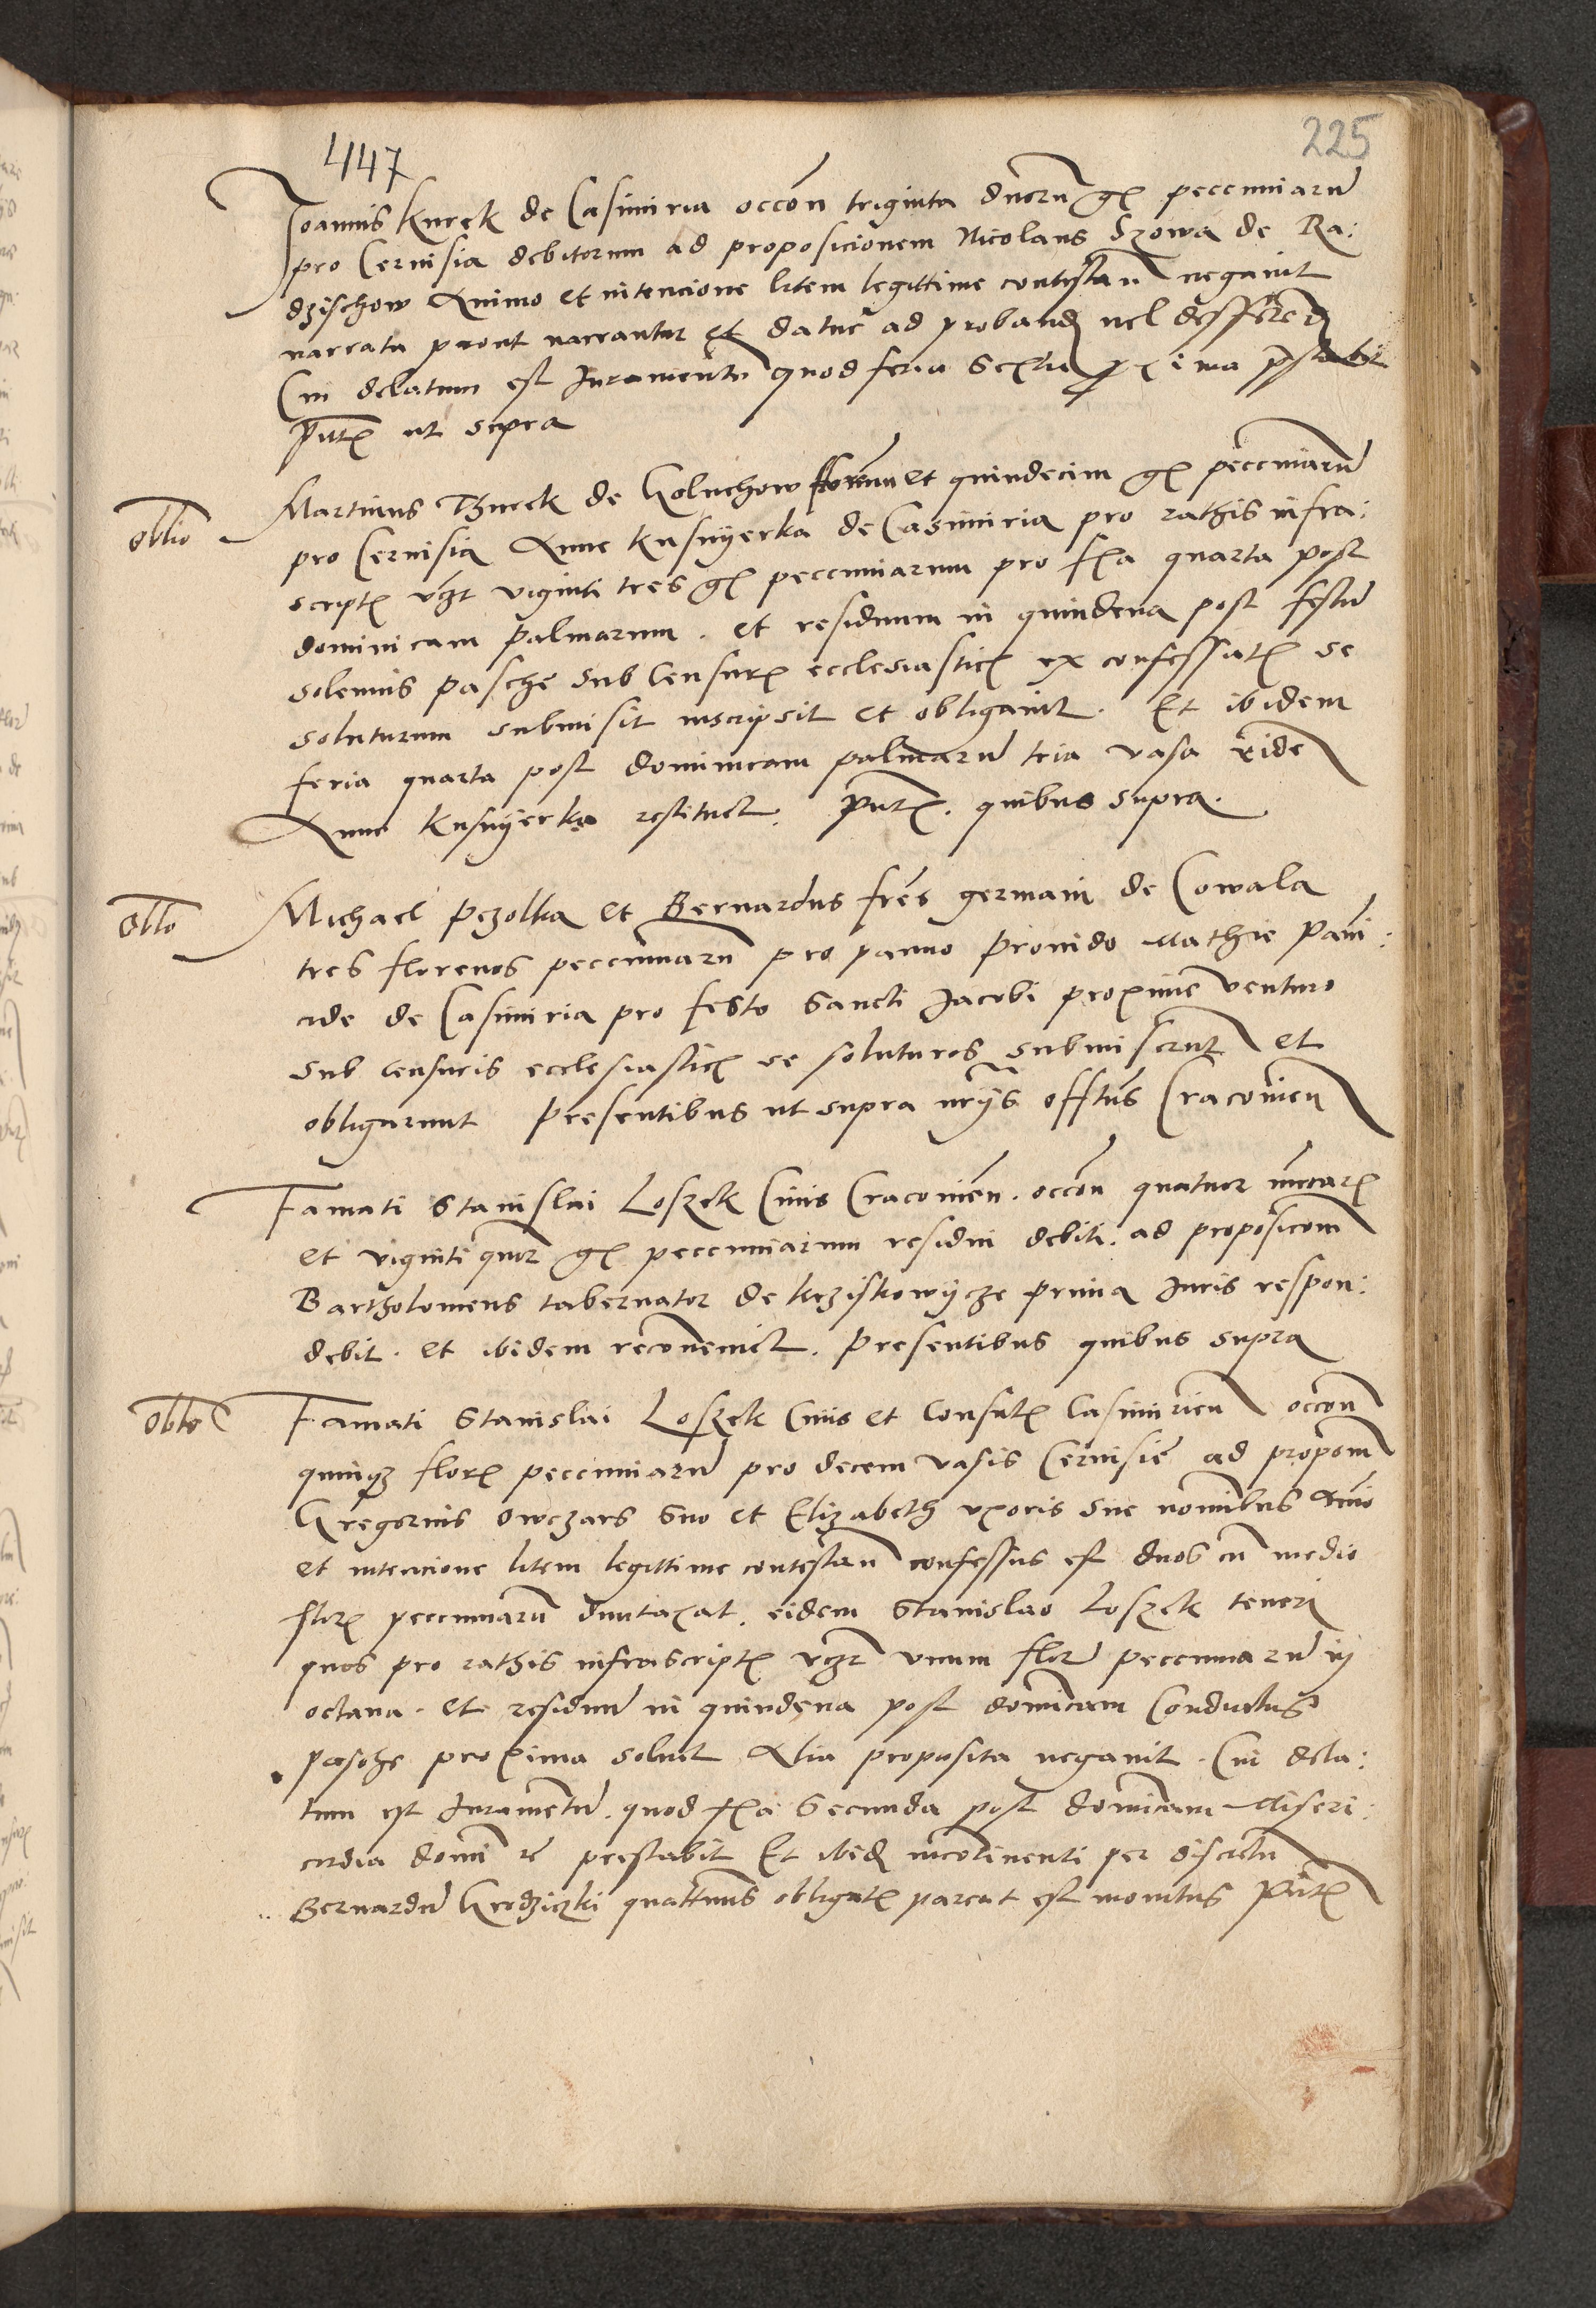 447
225
Joannis Kurek de Casimiria occōn triginta duorū gʳ pecuniarū
pro Cervisia debitorum ad proposicionem Nicolaus Szowa de Ra:
dzischow Animo et intencione litem legittime contestan negavit
narrata prout narrantur et datur ad proband vel defferend
Cui delatum est Juramentū quod feria Sexta proxima prestabit
Pntibus ut supra
oblio
Martinus Thurek de Goluchow florenum et quindecim gʳ pecuniarū
pro Cervisia Anne Kusnyerka de Casimiria pro rathis infra:
scriptis vczt viginti tres gʳ pecuniarum pro fīa quarta post
dominicam palmarum. et residuum in quindena post festū
solennis pasche sub Censuris ecclesiasticis ex confessatis se
soluturum submisit inscripsit et obligavit. Et ibidem
feria quarta post dominicam palmarū tria vasa eidē
Anne Kusnyerka restituet. Pntibus. quibus supra.
oblo
Michael Pczolka et Bernardus frēs germani de Cowala
tres florenos pecuniarū pro panno Provido Mathie Panni:
cide de Casimiria pro festo Sancti Jacobi proxime venturo
sub censuris ecclesiasticis se soluturos submiserūt et
obligarunt Presentibus ut supra nrijs offtus Cracovien
Famati Stanislai Loszek Civis Cracovien. occōn quatuor mrcarum
et viginti quor gʳ pecuniarum residui debiti. ad proposicōm
Bartholomeus tabernator de Krziskowycze prima Juris respon:
debit. et ibidem reconveniet. Presentibus quibus supra
oblo
Famati Stanislai Loszek Civis et Consulis Casimirien occōn
quinqz florenorum pecuniarū pro decem vasis Cervisie ad propōm
Gregorius Owczars Suo et Elizabeth uxoris sue nominibus Animo
et intencione litem legittime contestan confessus est duos cū medio
florenos pecuniarū duntaxat. eidem Stanislao Loszek teneri
quos pro rathis infrascriptis vczt unum flor pecuniarū in
octava. et residuū in quindena post dominicam Conductus
pasche proxima solvet Alia proposita negavit. Cui dela:
tum est Juramentū. quod fīa Secunda post dominicam Miseri:
cordia domini re prestabit Et ibid incontinenti per discretū
Bernardū Grodziczki quattenus obligatis pareat est monitus Pntibus